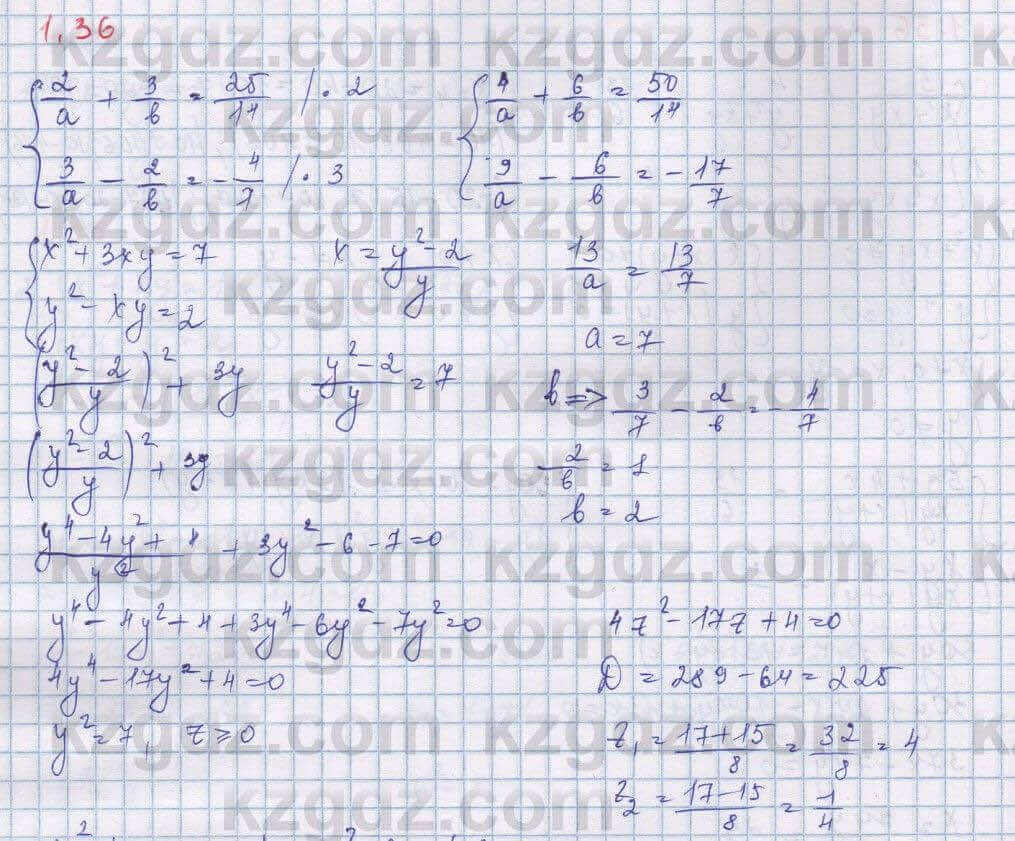 1.36
2/a + 3/b = 25/14 | · 2
3/a - 2/b = - 4/7 | · 3
4/a + 6/b = 50/14
9/a - 6/b = - 17/7
x² + 3xy = 7
y² - xy = 2
x = (y² - 2)/y
13/a = 13/7
a = 7
((y² - 2)/y)² + 3y (y² - 2)/y = 7
b => 3/7 - 2/b = - 4/7
((y² - 2)/y)² + 3y
- 2/b = 1
b = 2
(y⁴ - 4y² + 4)/y² + 3y² - 6 - 7 = 0
y⁴ - 4y² + 4 + 3y⁴ - 6y² - 7y² = 0
4y⁴ - 17y² + 4 = 0
y² = z, z ≥ 0
4z² - 17z + 4 = 0
D = 289 - 64 = 225
z₁ = (17 + 15)/8 = 32/8 = 4
z₂ = (17 - 15)/8 = 1/4
kzgdz.com